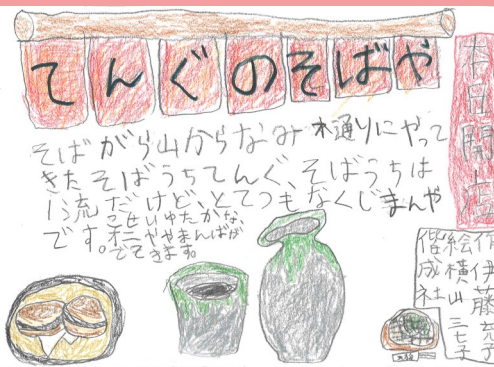 てんぐのそばや
本日開店
そばがら山からなみ木通りにやって
きたそばうちてんぐ、そばうちは
一流だけど、とてつもなくじまんや
です。
せいゆたかな、
ややまんばが
でてきます。
作伊藤充子
絵横山三七子
偕成社